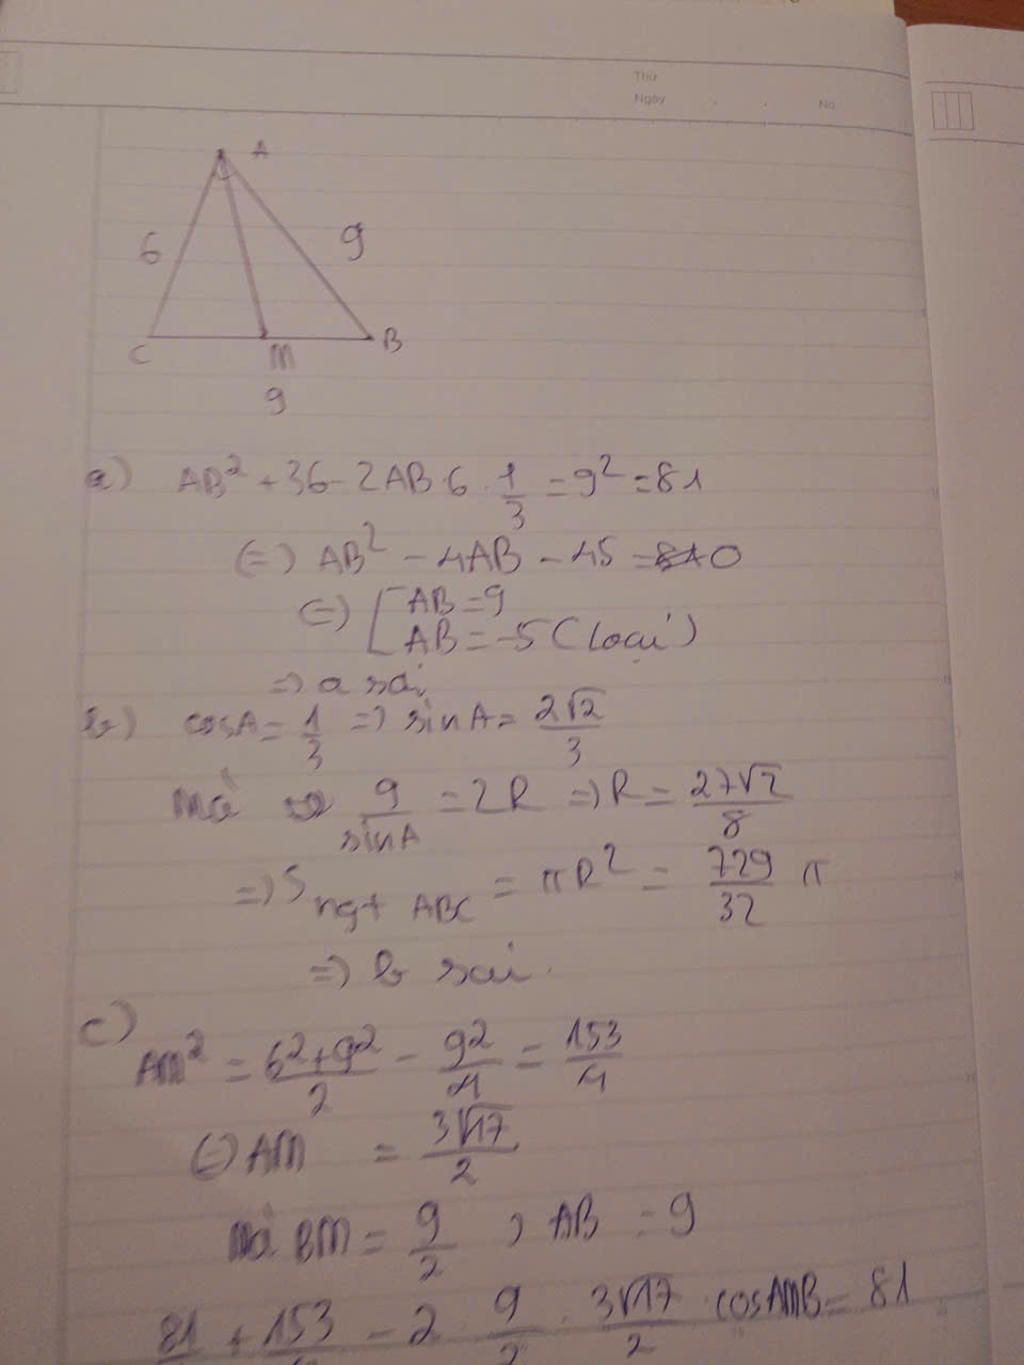 Thứ
Ngày . . No.
A
6 9
C M B
9
a) AB² + 36 - 2AB·6·1/3 = 9² = 81
(=) AB² - 4AB - 45 = 0
(=) [ AB = 9
AB = -5 (loại)
=) a sai
b) cosA = 1/3 =) sinA = 2√2/3
Mà 9/sinA = 2R =) R = 27√2/8
=) S ngt ABC = πR² = 729/32 π
=) b sai.
c)
AM² = (6² + 9²)/2 - 9²/4 = 153/4
(=) AM = 3√17/2
Mà BM = 9/2 , AB = 9
81 + 153 - 2 · 9/2 · 3√17/2 · cosAMB = 81